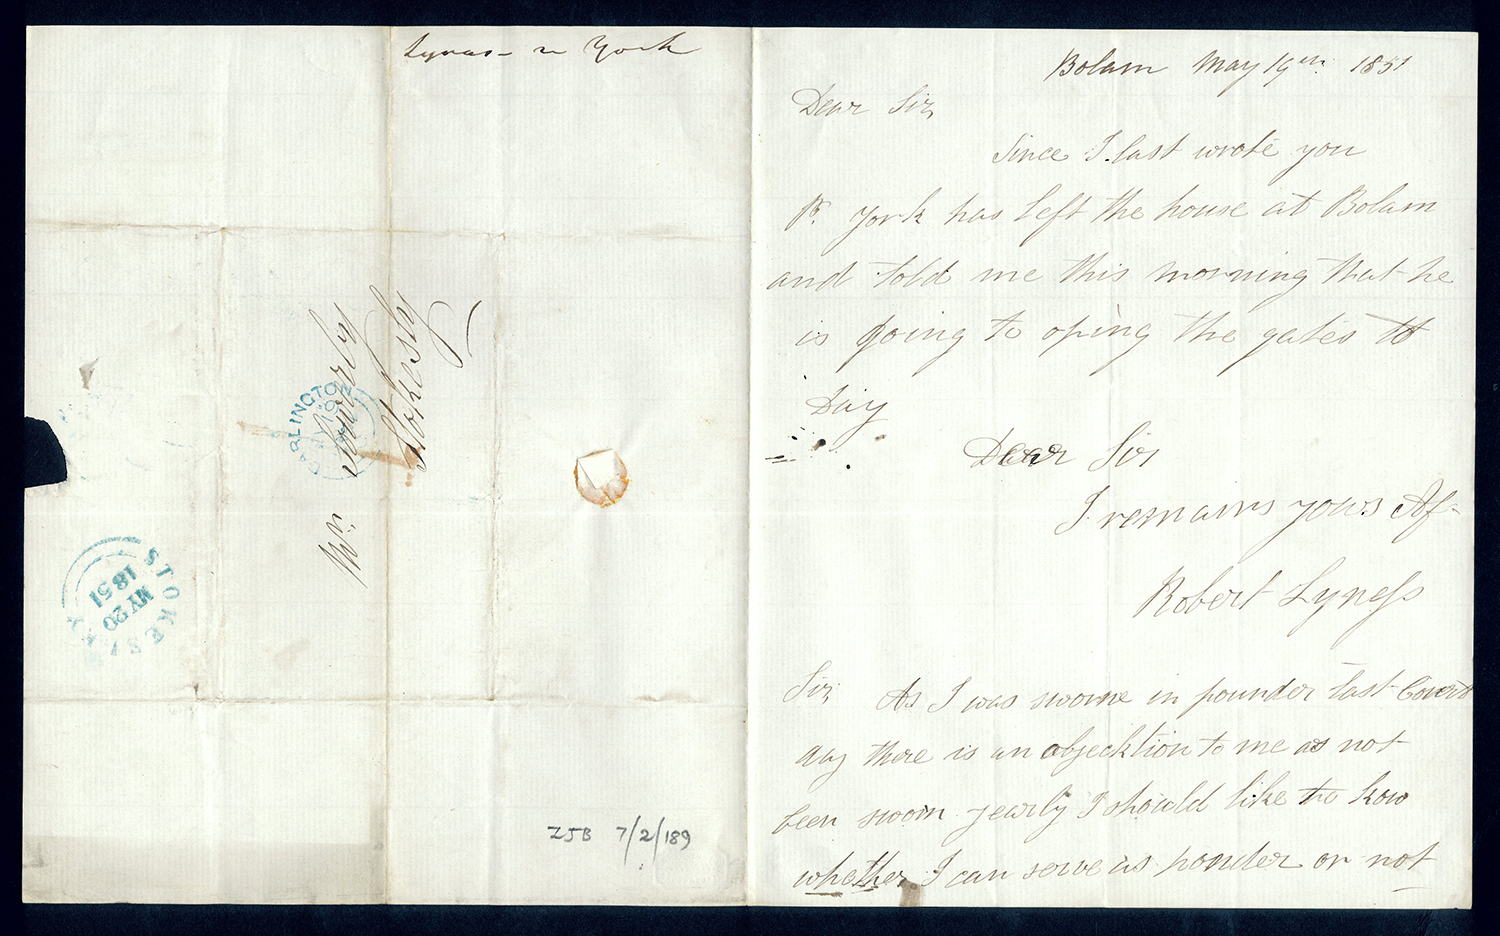 Lyness v York
Mr. Sowerby
Stokesly
DARLINGTON
MY 19
1851
STOKESLEY
MY 20
1851
ZJB 7/2/189
Bolam May 19th 1851
Dear Sir,
Since I last wrote you
York has left the house at Bolam
and told me this morning that he
is going to oping the gates to
Day
Dear Sir
I remains yours &c
Robert Lyness
Sir, As I was sworne in pounder last Court
day there is an objecktion to me as not
been sworn yearly I should like to kow
whether I can serve as ponder or not